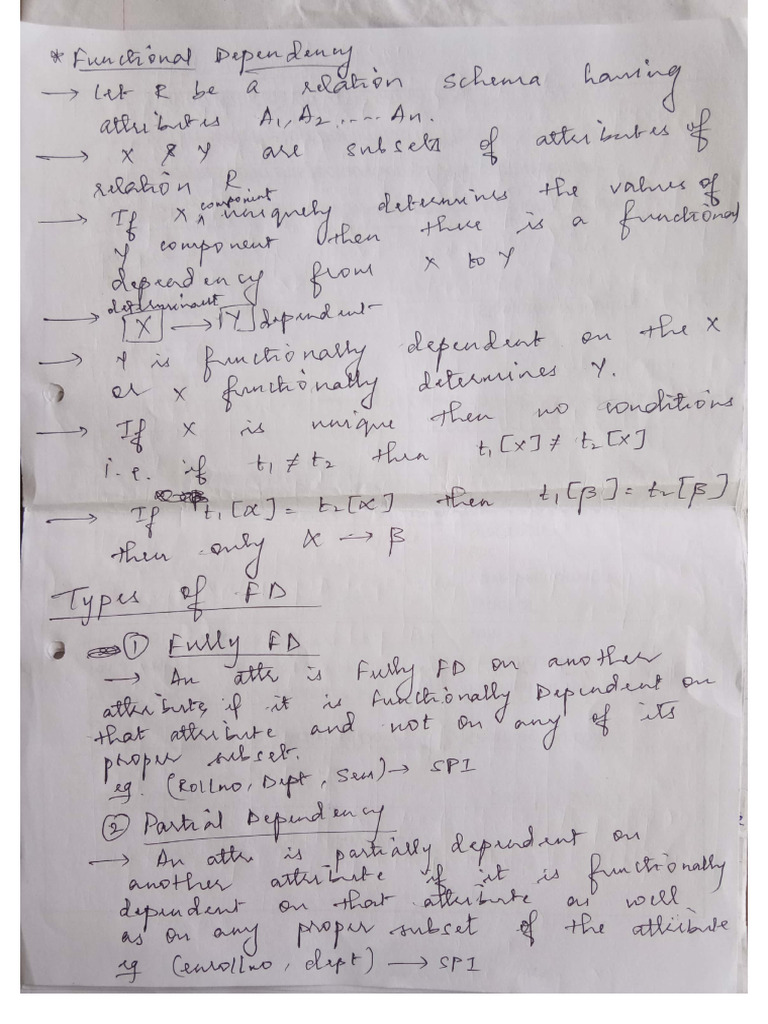 * Functional Dependency
→ Let R be a relation schema having
attributes A1, A2, ---- An.
→ X & Y are subsets of attributes of
relation R
→ If X component uniquely determines the values of
Y component then there is a functional
dependency from X to Y
determinant
→ [X] → [Y] dependent
→ Y is functionally dependent on the X
or X functionally determines Y.
→ If X is unique then no conditions
i.e. if t1 ≠ t2 then t1[X] ≠ t2[X]
→ If t1[α] = t2[α] then t1[β] = t2[β]
then only α → β
Types of FD
① Fully FD
→ An attr is Fully FD on another
attribute if it is Functionally Dependent on
that attribute and not on any of its
proper subset.
eg. (Rollno, Dept, Sem) → SPI
② Partial Dependency
→ An attr is partially dependent on
another attribute if it is functionally
dependent on that attribute as well
as on any proper subset of the attribute
eg (enrollno, dept) → SPI